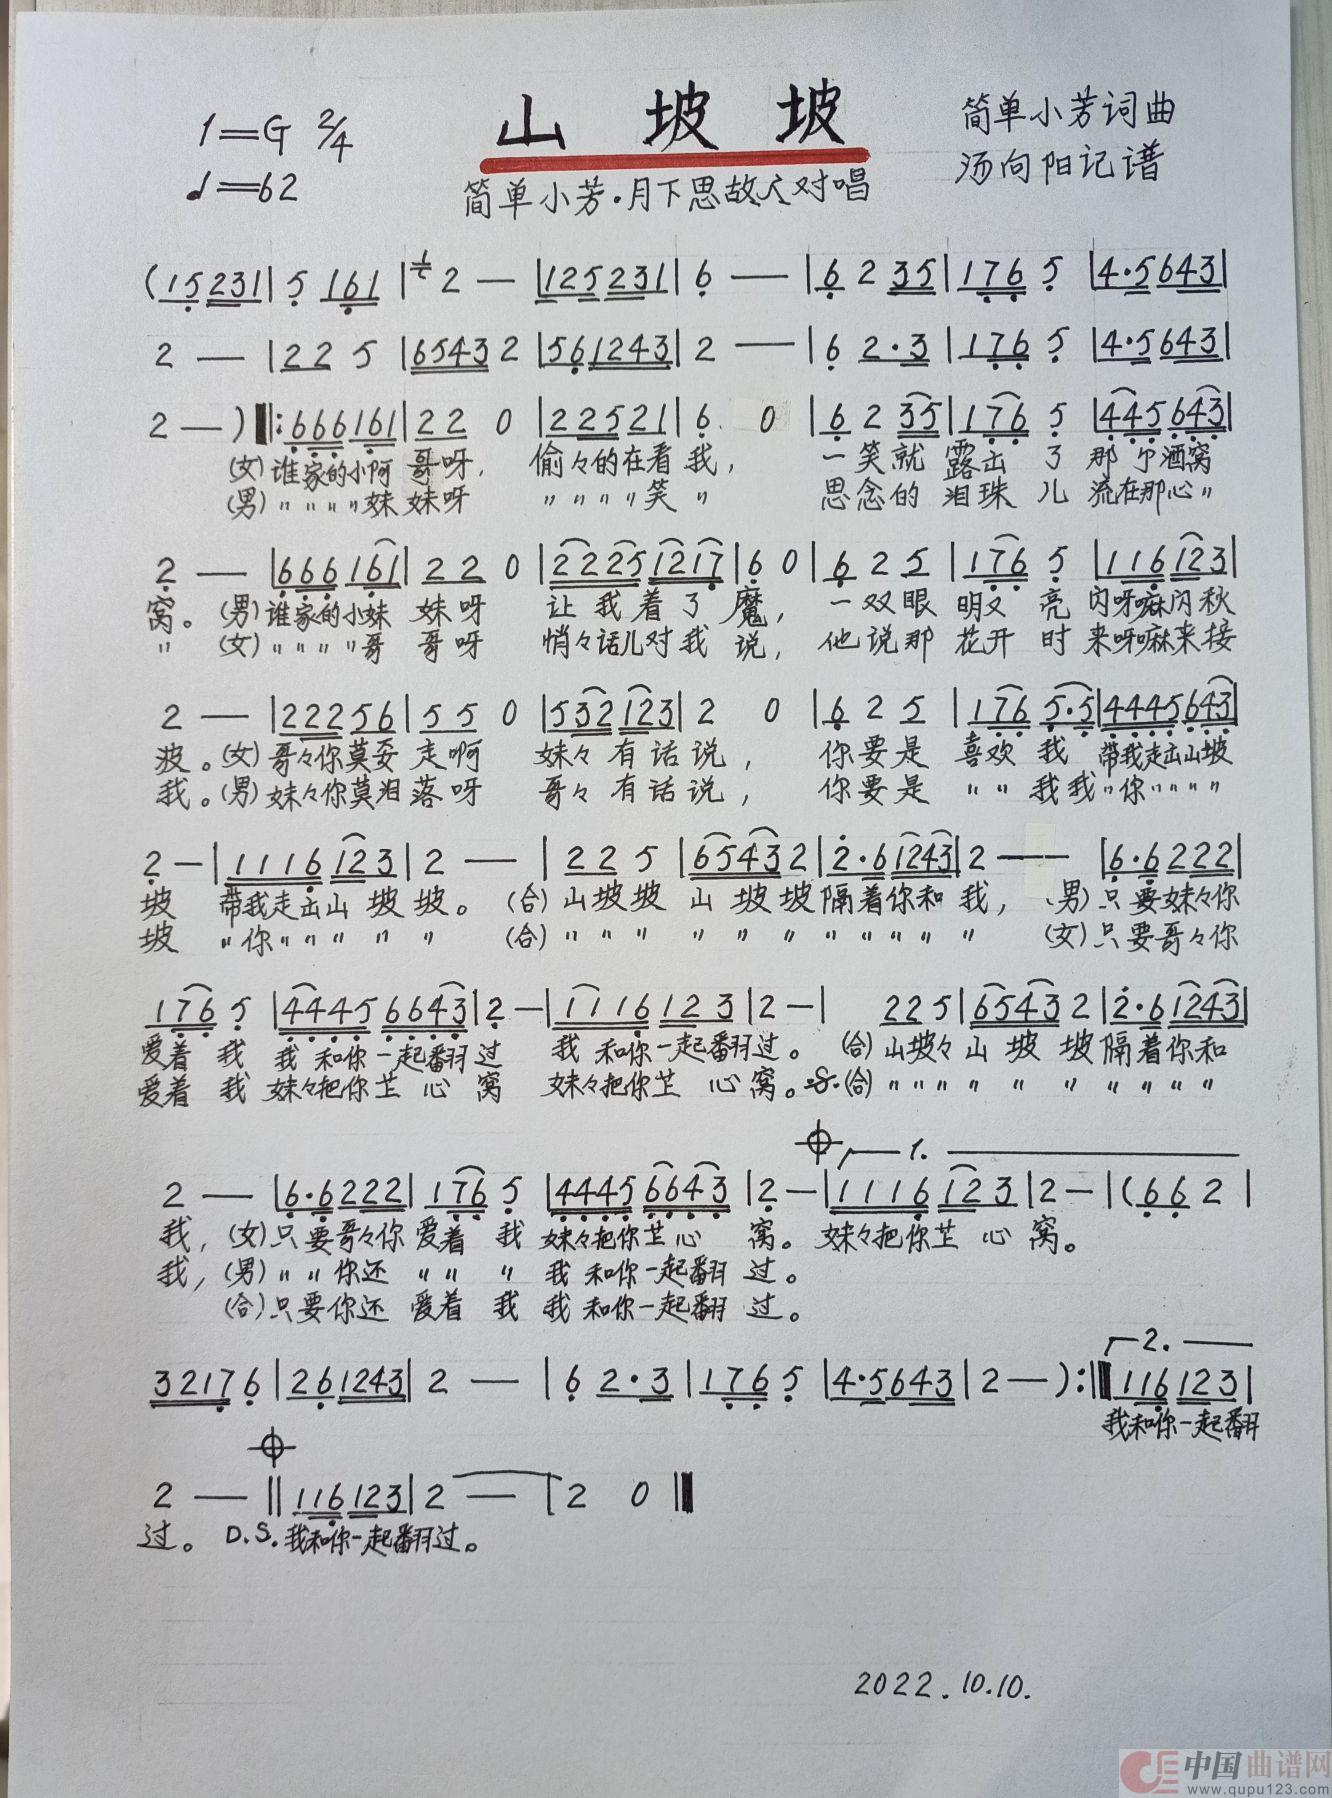 1=G 2/4
山坡坡
简单小芳词曲
♩=62
简单小芳·月下思故人对唱
汤向阳记谱
(15231|5 161|2 —|125231|6 —|6 2 35|176 5|4·5643|
2 —|22 5|6543 2|561243|2 —|6 2·3|176 5|4·5643|
2 —)‖:666161|22 0|22521|6 0|6 2 35|176 5|445643|
(女)谁家的小阿哥呀, 偷々的在看我, 一笑就露出了那个酒窝
(男)〃〃〃〃妹妹呀 〃〃〃〃笑〃 思念的泪珠儿流在那心〃
2 —|666161|22 0|22251217|6 0|6 2 5|176 5|116123|
窝。(男)谁家的小妹妹呀 让我着了魔, 一双眼明又亮闪呀嘛闪秋
〃 (女)〃〃〃〃哥哥呀 悄々话儿对我说, 他说那花开时来呀嘛来接
2 —|22256|55 0|532123|2 0|6 2 5|176 5·5|4445643|
波。(女)哥々你莫要走啊 妹々有话说, 你要是喜欢我带我走出山坡
我。(男)妹々你莫泪落呀 哥々有话说, 你要是〃〃我我〃你〃〃〃〃
2 —|1116123|2 —|22 5|6543 2|2·61243|2 —|6·6222|
坡 带我走出山坡坡。(合)山坡坡山坡坡隔着你和我, (男)只要妹々你
坡 〃你〃〃〃〃〃 (合)〃〃〃〃〃〃〃〃〃〃〃 (女)只要哥々你
176 5|44456643|2 —|1116123|2 —|22 5|6543 2|2·61243|
爱着我我和你一起翻过 我和你一起翻过。(合)山坡々山坡坡隔着你和
爱着我妹々把你芷心窝 妹々把你芷心窝。(合)〃〃〃〃〃〃〃〃〃〃
1.
2 —|6·6222|176 5|44456643|2 —|1116123|2 —|(66 2|
我,(女)只要哥々你爱着我妹々把你芷心窝。妹々把你芷心窝。
我,(男)〃〃你还〃〃〃我和你一起翻过。
(合)只要你还爱着我我和你一起翻过。
2.
32176|261243|2 —|6 2·3|176 5|4·5643|2 —):‖116123|
我和你一起翻
2 —‖116123|2 —|2 0‖
过。 D.S.我和你一起翻过。
2022.10.10.
中国曲谱网
www.qupu123.com